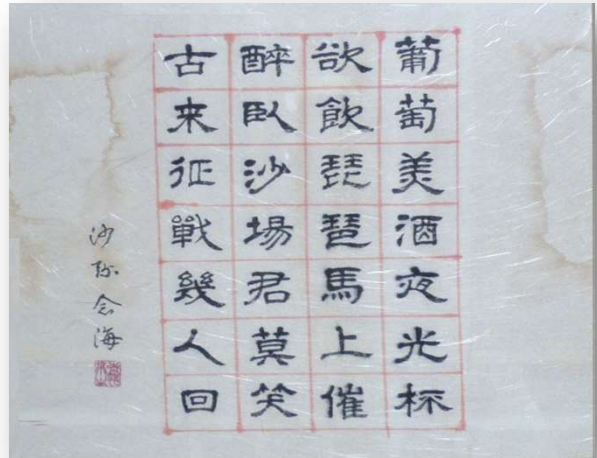 葡萄美酒夜光杯
欲飲琵琶馬上催
醉臥沙場君莫笑
古来征戰幾人回